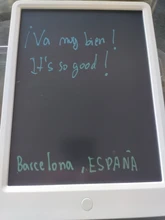 ¡Va muy bien!
It's so good!
Barcelona, ESPAÑA